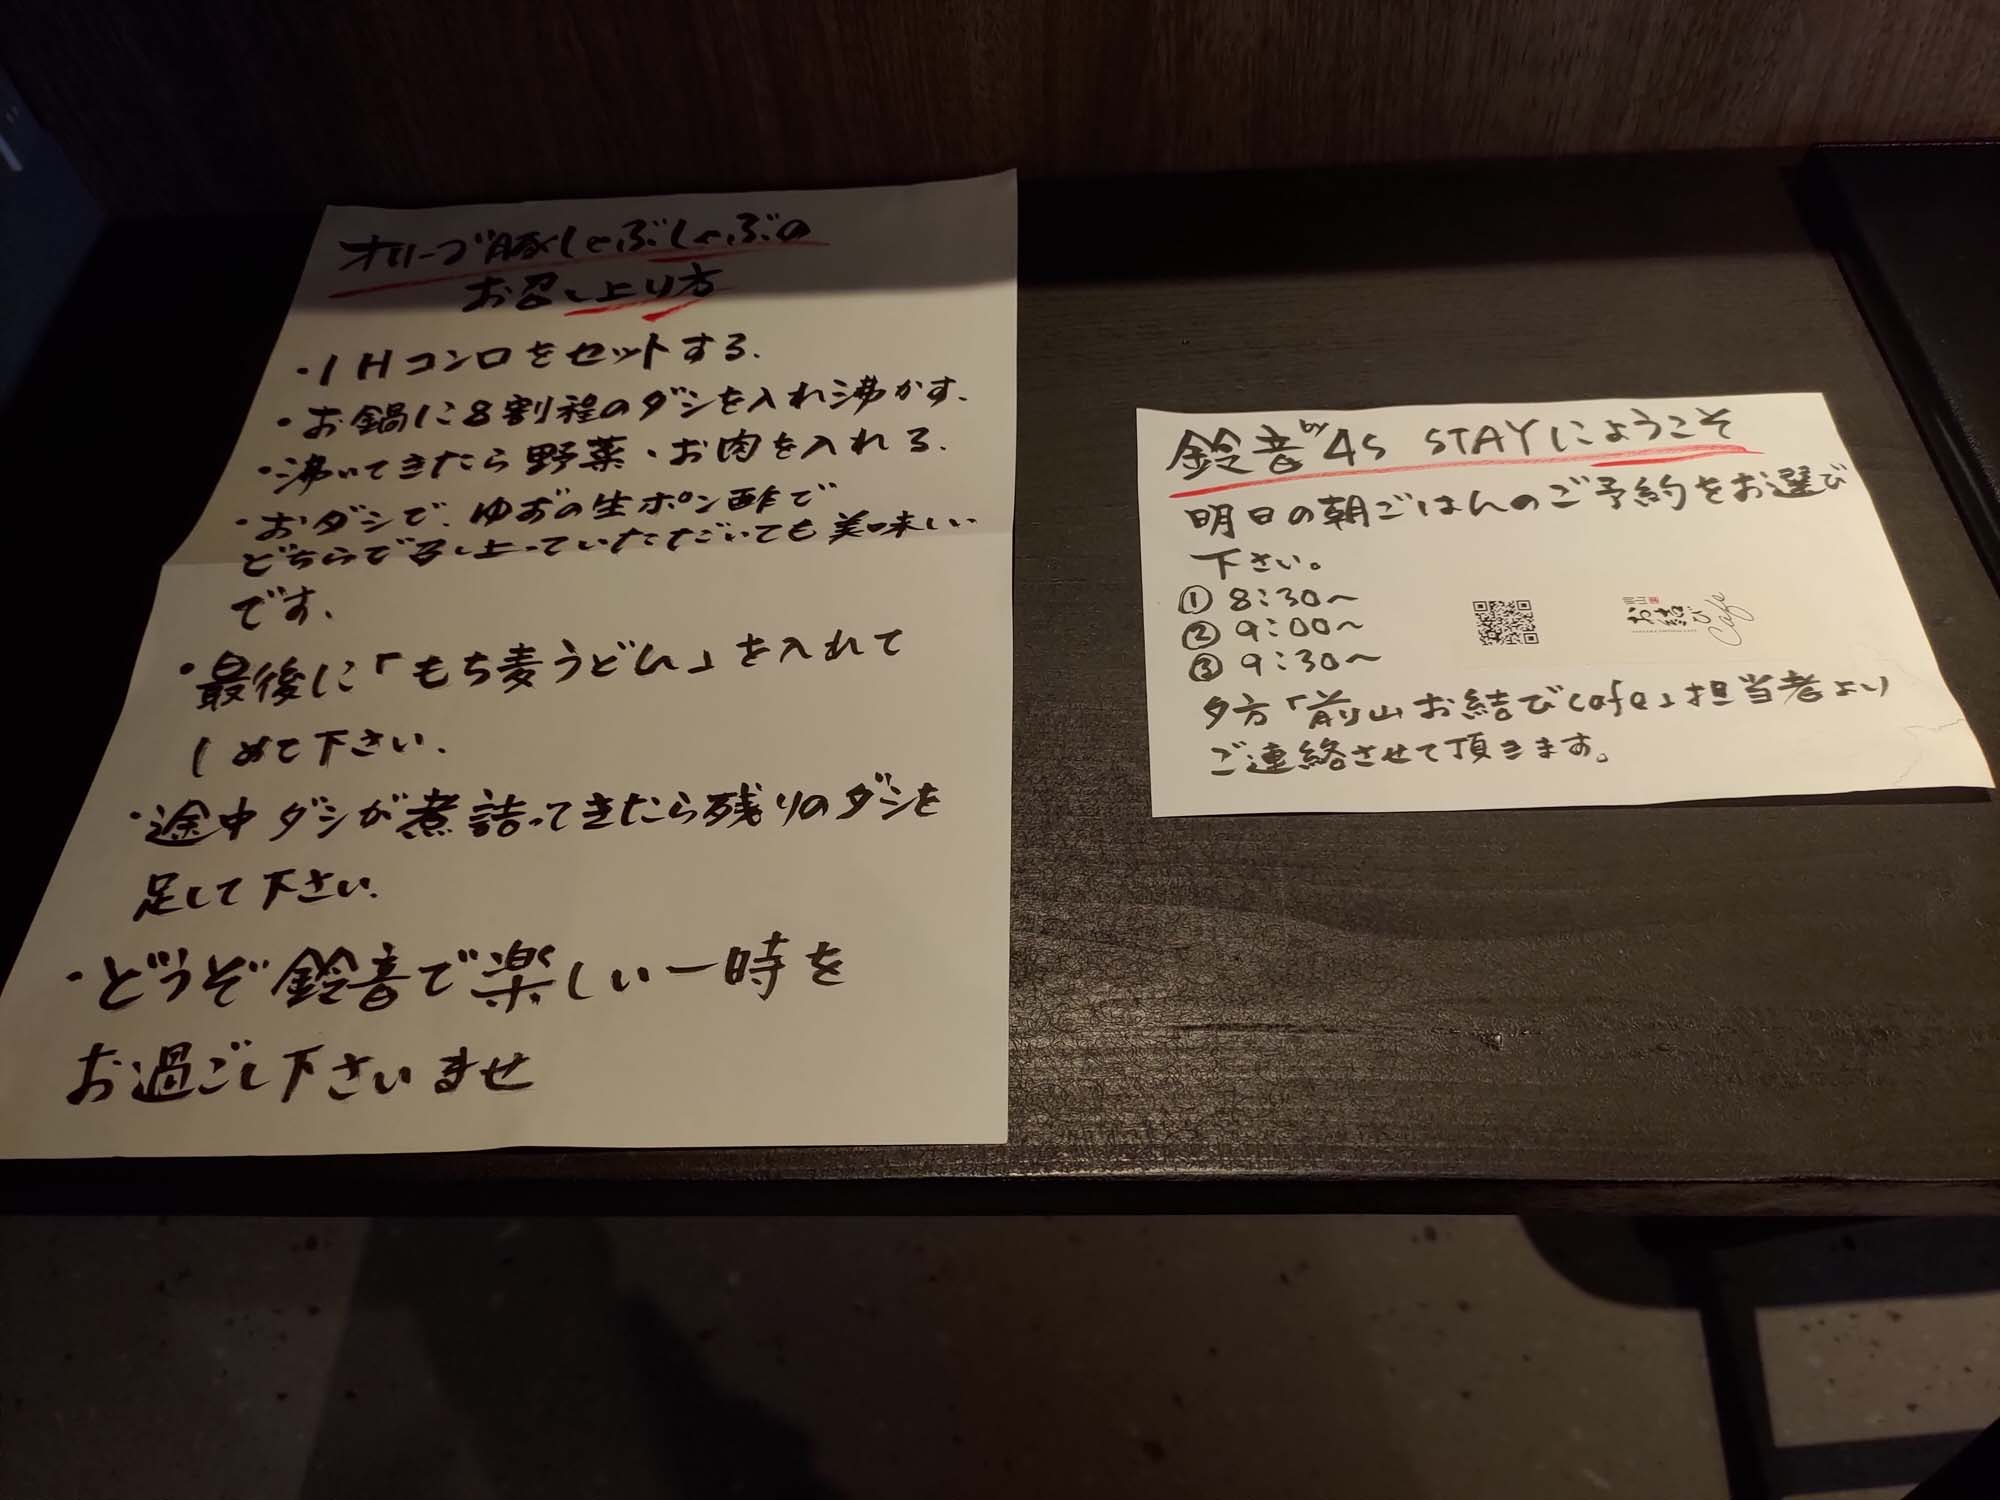 オリーブ豚しゃぶしゃぶの
お召し上り方
・IHコンロをセットする.
・お鍋に8割程のダシを入れ沸かす.
・沸いてきたら野菜・お肉を入れる.
・おダシで、ゆずの生ポン酢で
どちらで召し上っていただいても美味しい
です.
・最後に「もち麦うどん」を入れて
しめて下さい.
・途中ダシが煮詰ってきたら残りのダシを
足して下さい.
・どうぞ鈴音で楽しい一時を
お過ごし下さいませ
鈴音by4S STAYにようこそ
明日の朝ごはんのご予約をお選び
下さい。
① 8:30〜
② 9:00〜
③ 9:30〜
お結び Cafe
夕方「前山お結びcafe」担当者より
ご連絡させて頂きます。